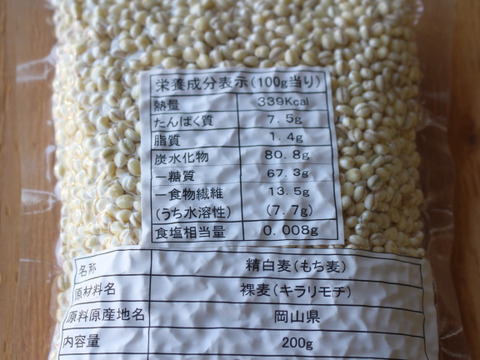 栄養成分表示(100g当り)
熱量 339Kcal
たんぱく質 7.5g
脂質 1.4g
炭水化物 80.8g
－糖質 67.3g
－食物繊維 13.5g
(うち水溶性) (7.7g)
食塩相当量 0.008g
名称 精白麦(もち麦)
原材料名 裸麦(キラリモチ)
原料原産地名 岡山県
内容量 200g